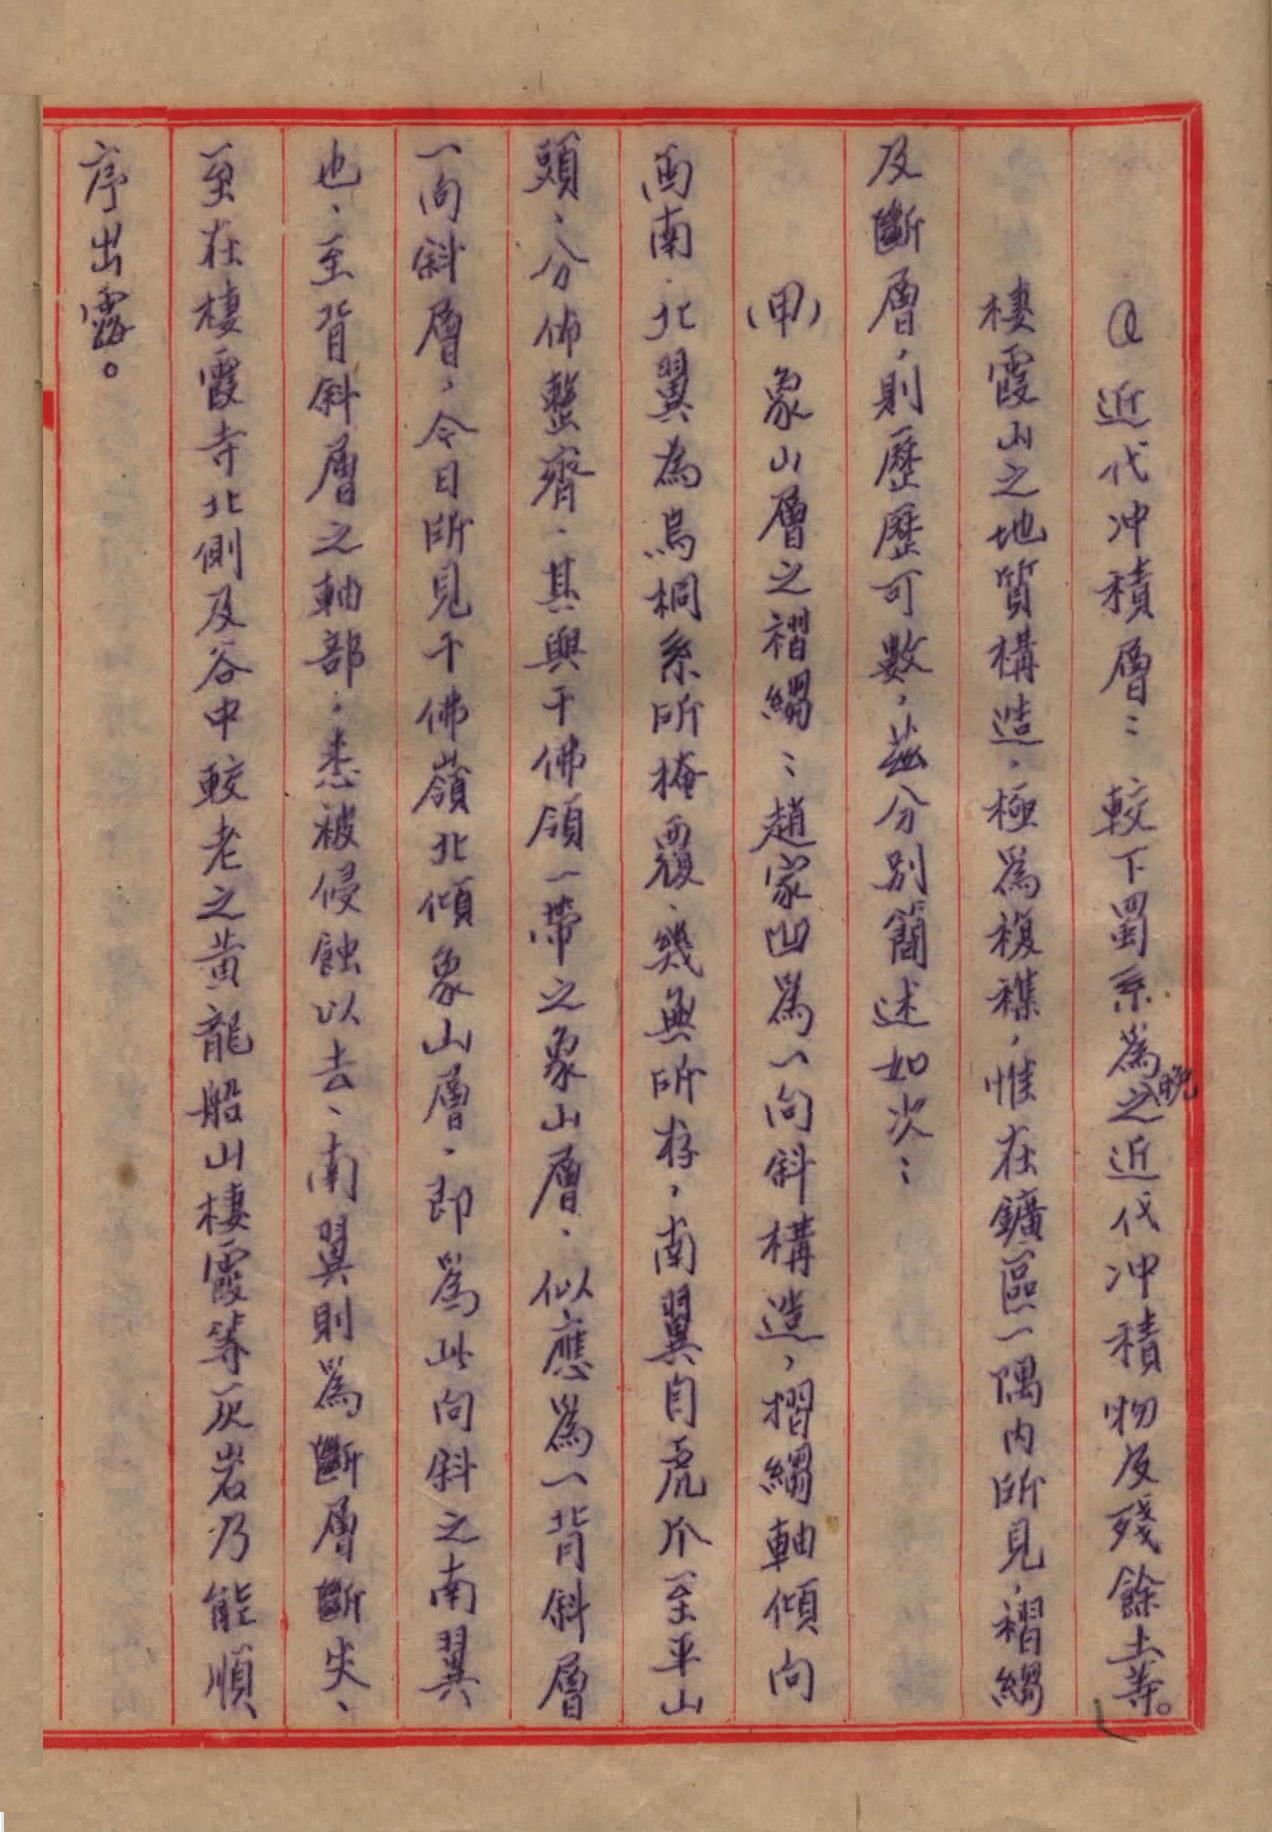 Q近代冲積層：較下蜀系為晚之近代冲積物及殘餘土等。
棲霞山之地質構造，極爲複襍，惟在鑛區一隅内所見，褶縐
及斷層，則歷歷可數，茲分别簡述如次：
（甲）象山層之褶縐：趙家山爲一向斜構造，摺縐軸傾向
西南、北翼為烏桐系所掩覆、幾無所存，南翼自虎爪至平山
頭、分佈整齊、其與千佛領一帶之象山層、似應爲一背斜層
一向斜層，今日所見千佛嶺北傾象山層、即爲此向斜之南翼
也、至背斜層之軸部、悉被侵蝕以去、南翼則爲斷層斷失、
至在棲霞寺北側及谷中較老之黄龍船山棲霞等灰岩乃能順
序出露。